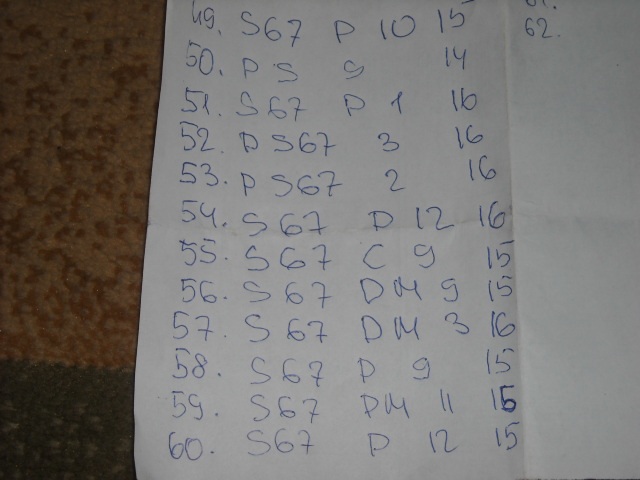 49. S67 P 10 15
50. P S 9 14
51. S67 P 1 16
52. P S67 3 16
53. P S67 2 16
54. S67 P 12 16
55. S67 C 9 15
56. S67 DM 9 15
57. S67 DM 3 16
58. S67 P 9 15
59. S67 PM 11 15
60. S67 P 12 15
61.
62.